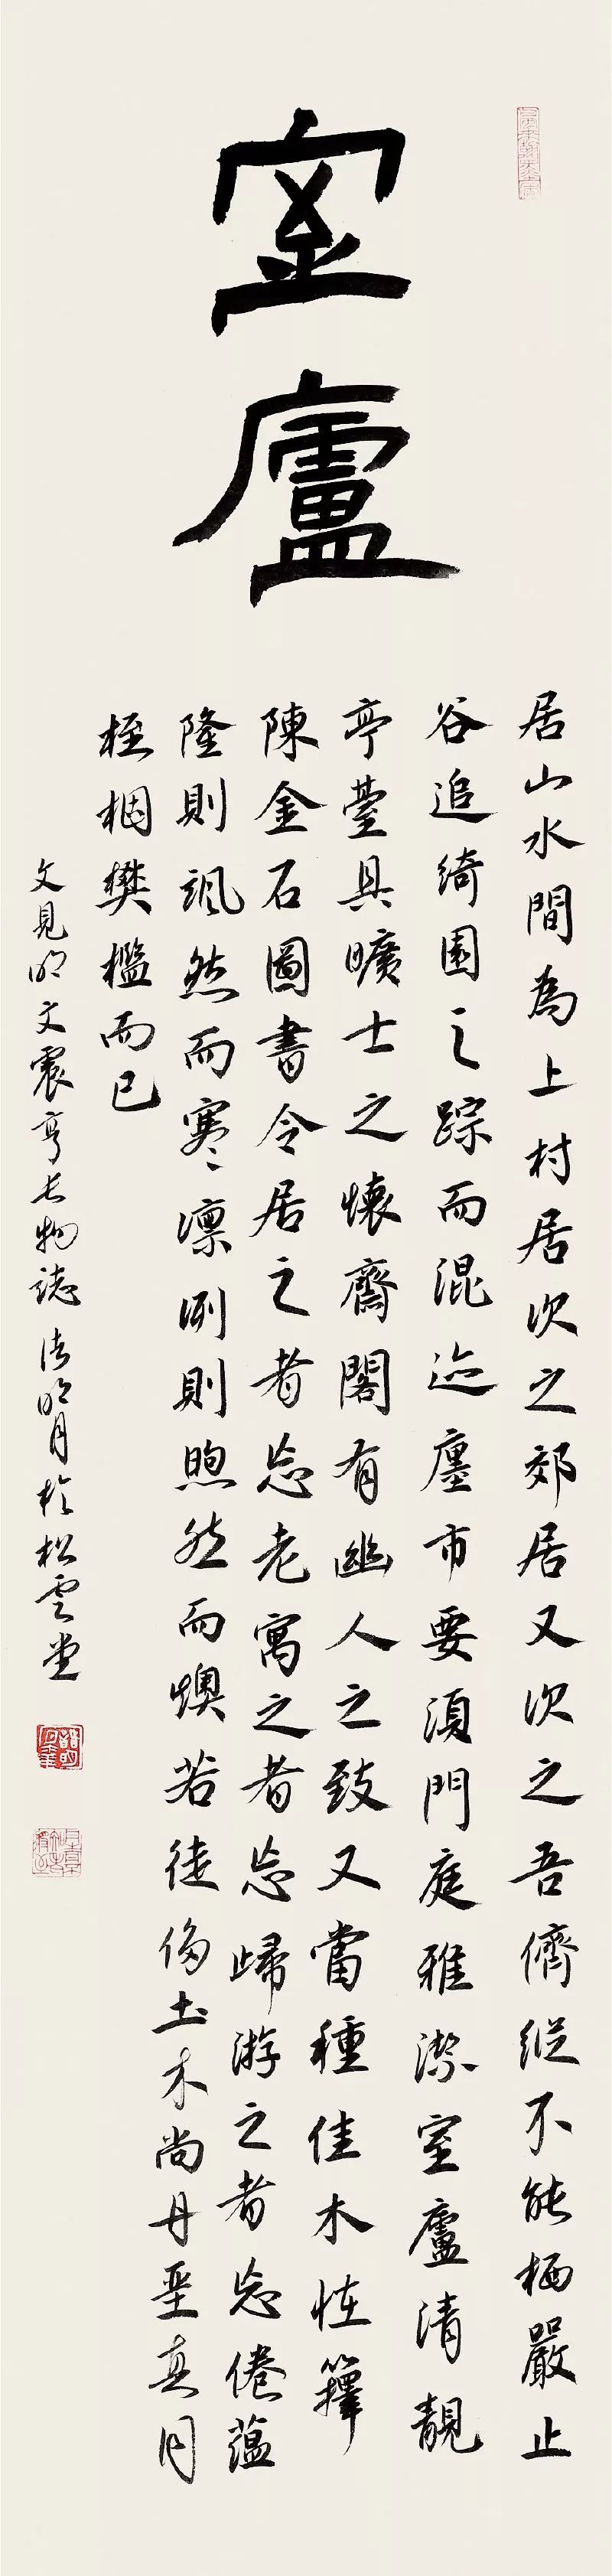 室廬
居山水間為上村居次之郊居又次之吾儕縱不能栖嚴止
谷追綺園之踪而混迹廛市要須門庭雅潔室廬清靚
亭臺具曠士之懷齋閣有幽人之致又當種佳木怪籜
陳金石圖書令居之者忘老寓之者忘歸游之者忘倦蘊
隆則颯然而寒凛冽則煦然而燠若徒侈土木尚丹堊真同
桎梏樊檻而已
文見明文震亨長物誌 清明月於松雲堂